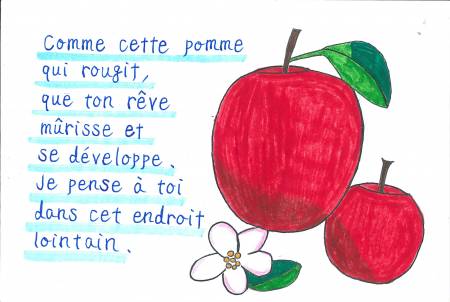 Comme cette pomme
qui rougit,
que ton rêve
mûrisse et
se développe.
Je pense à toi
dans cet endroit
lointain.